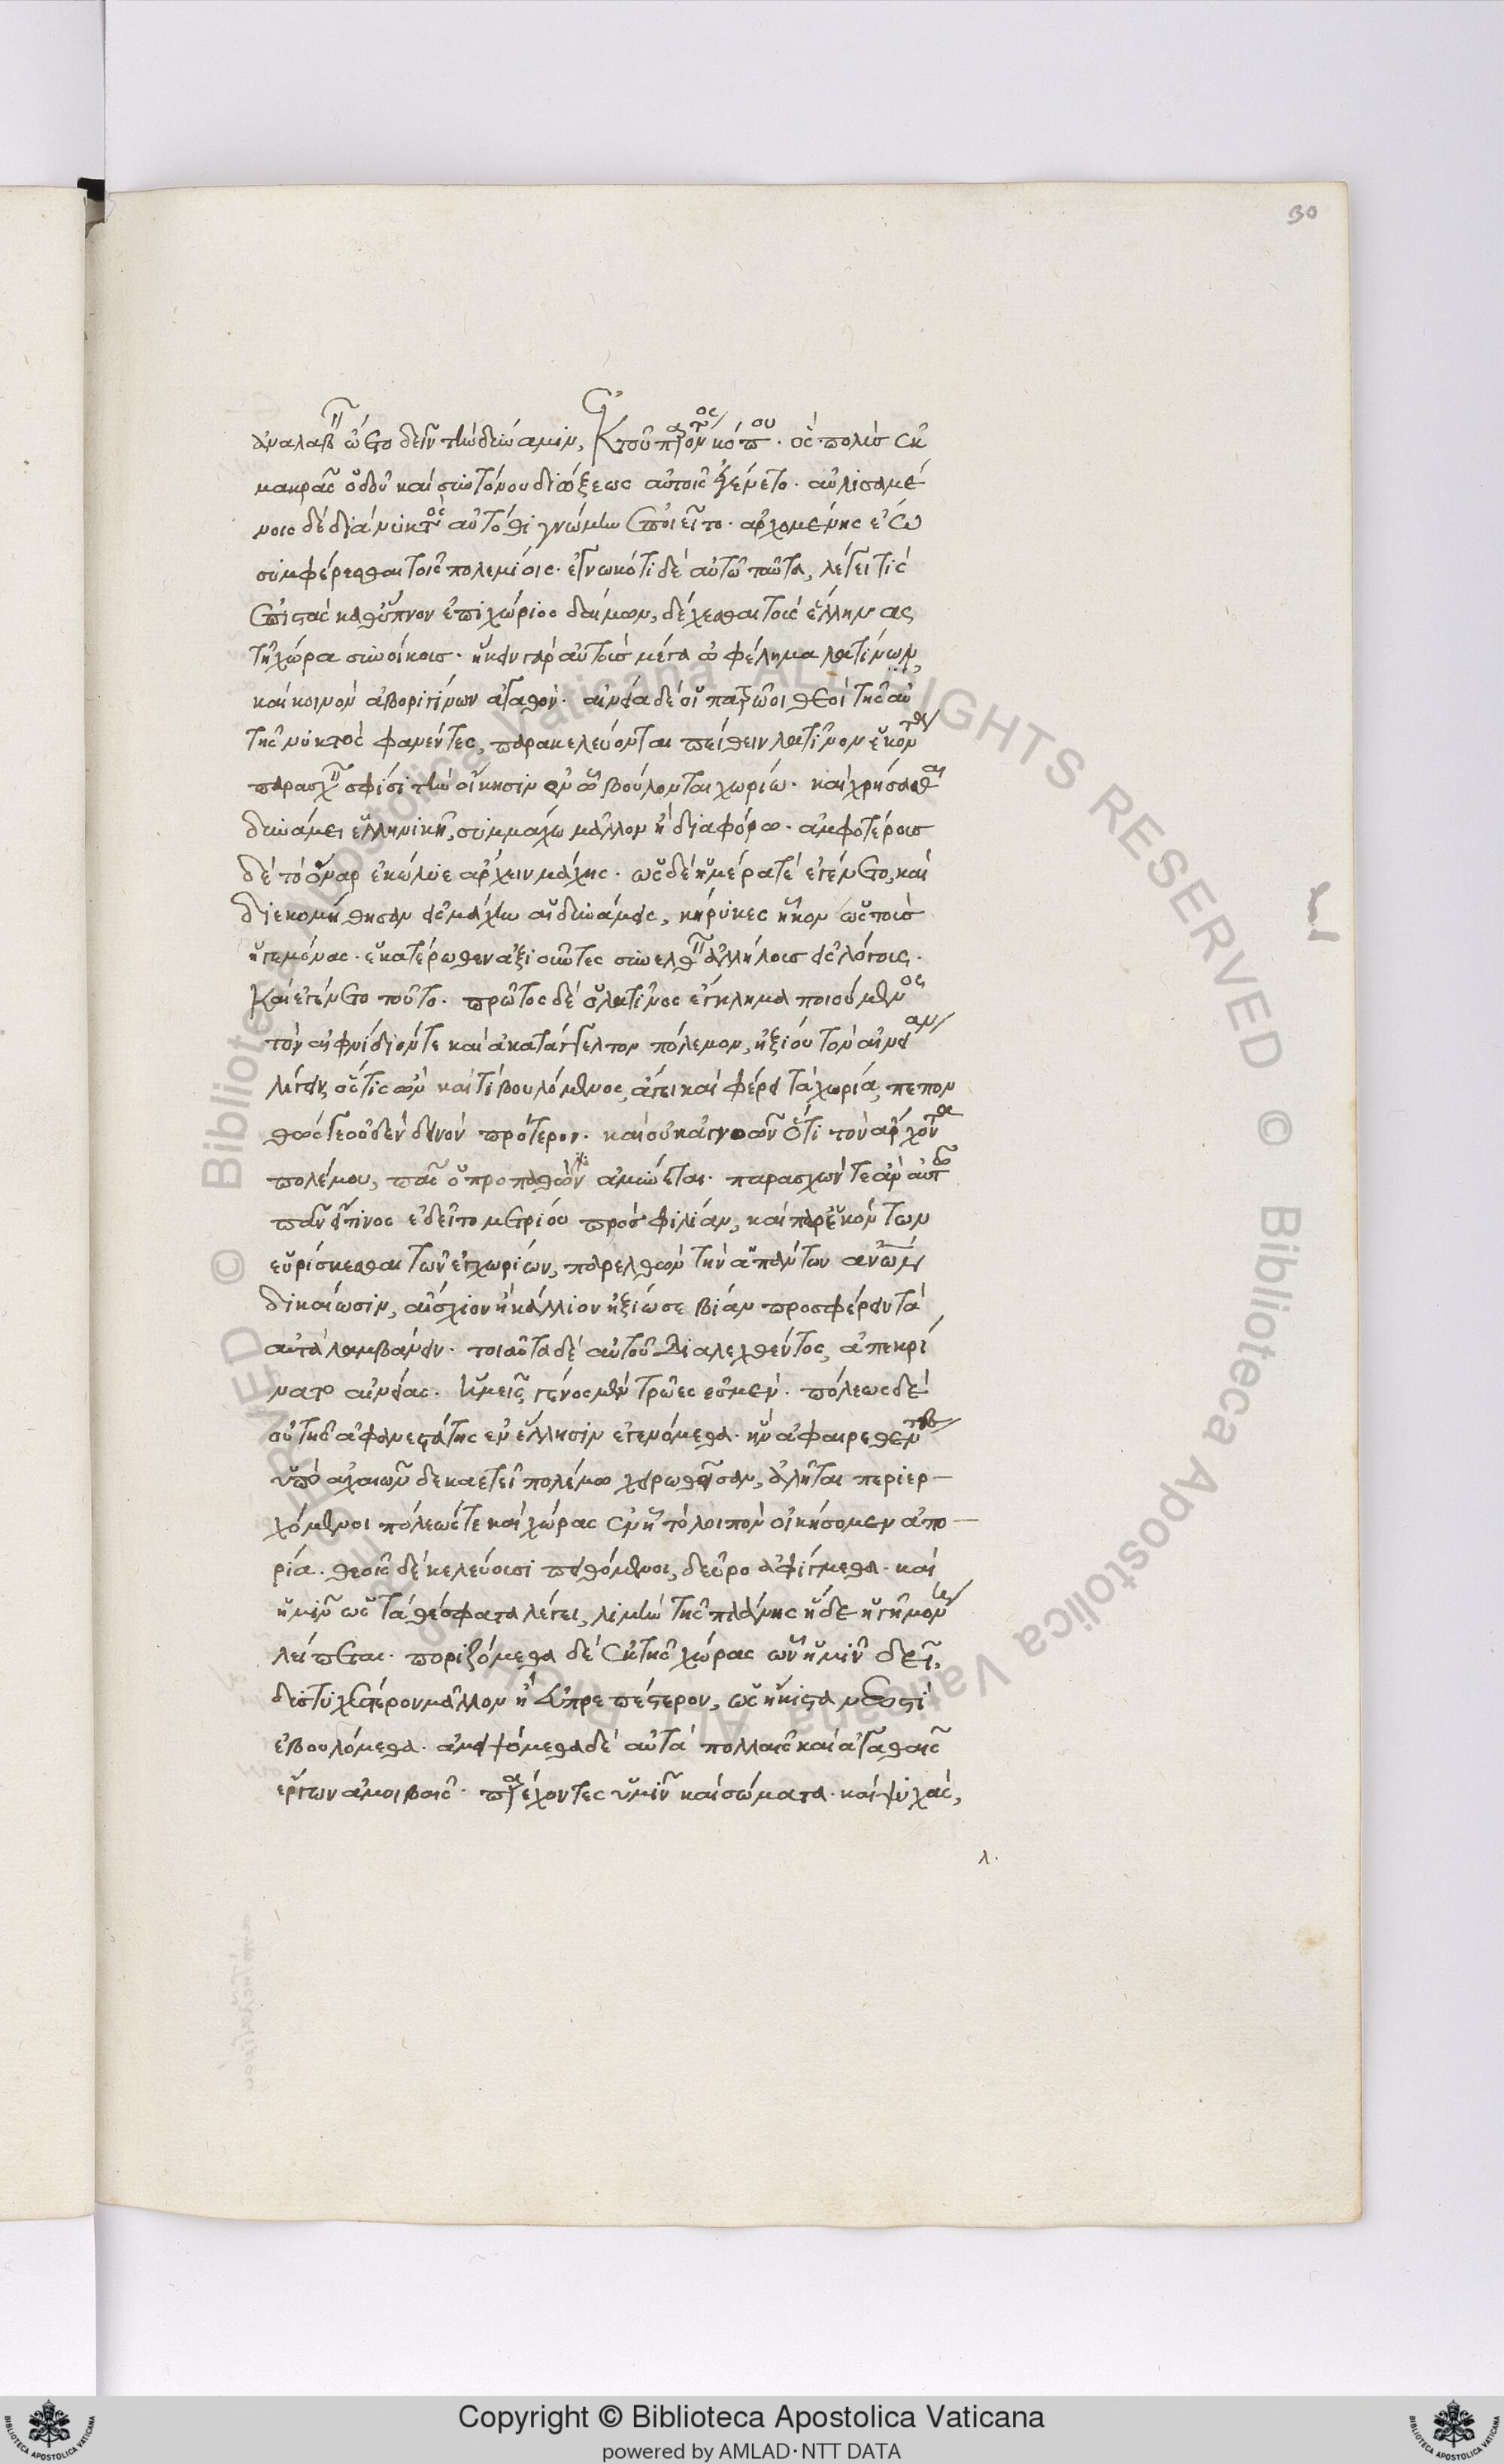 30
ἀναλαβεῖν ᾤετο δεῖν τὴν δύναμιν, ἐκ τοῦ παρόντος κόπου. ὃς πολὺς ἐκ
μακρᾶς ὁδοῦ καὶ συντόνου διώξεως αὐτοῖς ἐγένετο. αὐλισαμέ
νοις δὲ διὰ νυκτὸς αὐτόθι γνώμην ἐποιεῖτο. ἀρχομένης ἕω
συμφέρεσθαι τοῖς πολεμίοις. ἐγνωκότι δὲ αὐτῷ ταῦτα, λέγει τίς
ἐπιστὰς καθ' ὕπνον ἐπιχώριος δαίμων, δέχεσθαι τοὺς ἕλληνας
τῇ χώρα συνοίκους. ἥκειν γὰρ αὐτοὺς μέγα ὠφέλημα λατίνων,
καὶ κοινὸν ἀβοριγίνων ἀγαθόν. αἰνεία δὲ οἱ πατρῶοι θεοὶ τῆς αὐ
τῆς νυκτὸς φανέντες, παρακελεύονται πείθειν λατῖνον ἑκόντα
παρασχεῖν σφίσι τὴν οἴκησιν ἐν ᾧ βούλονται χωρίω. καὶ χρήσασθαι
δυνάμει ἑλληνικῆ, συμμάχω μᾶλλον ἢ διαφόρω. ἀμφοτέρους
δὲ τὸ ὄναρ ἐκώλυε ἄρχειν μάχης. ὡς δὲ ἡμέρα τὲ ἐγένετο, καὶ
διεκομήθησαν εἰς μάχην αἱ δυνάμεις, κήρυκες ἧκον ὡς τοὺς
ἡγεμόνας. ἑκατέρωθεν ἀξιοῦντες συνελθεῖν ἀλλήλοις εἰς λόγους.
Καὶ ἐγένετο τοῦτο. πρῶτος δὲ ὁ λατῖνος ἔγκλημα ποιούμενος
τὸν αἰφνίδιόν τε καὶ ἀκατάγγελτον πόλεμον, ἠξίου τὸν αἰνείαν
λέγειν, ὅστις ὢν καὶ τί βουλόμενος, ἄγει καὶ φέρει τὰ χωρία, πεπον
θώς τε οὐδὲν δεινὸν πρότερον. καὶ οὐκ ἀγνοῶν ὅτι τὸν ἄρχοντα
πολέμου, πᾶς ὁ προπαθὼν ἀμύνεται. παρασχών τε ἂν αὐτῷ
πᾶν εἴ τινος ἐδεῖτο μετρίου πρὸς φιλίαν, καὶ παρ' ἑκόντων
εὑρίσκεσθαι τῶν ἐγχωρίων, παρελθὼν τὴν ἁπάντων ἀνθρώπων
δικαίωσιν, αἴσχιον ἢ κάλλιον ἠξίωσε βίαν προσφέρειν τὰ
αὐτὰ λαμβάνειν. τοιαῦτα δὲ αὐτοῦ διαλεχθέντος, ἀπεκρί
νατο αἰνείας. ἡμεῖς, γένος μὲν τρῶες ἐσμέν. πόλεως δὲ
οὐ τῆς ἀφανεστάτης ἐν ἕλλησιν ἐγενόμεθα. ἣν ἀφαιρεθέντες
ὑπὸ ἀχαιῶν δεκαετεῖ πολέμω χειρωθεῖσαν, ἀλῆται περιερ–
χόμενοι πόλεώς τε καὶ χώρας ἐν ᾗ τὸ λοιπὸν οἰκήσομεν ἀπο–
ρία. θεοῖς δὲ κελεύουσι πειθόμενοι, δεῦρο ἀφίγμεθα. καὶ
ἡμῖν ὡς τὰ θέσφατα λέγει, λιμὴν τῆς πλάνης ἥδε ἡ γῆ μόνη
λείπεται. ποριζόμεθα δὲ ἐκ τῆς χώρας ὧν ἡμῖν δεῖ,
δυστυχέστερον μᾶλλον ἢ εὐπρεπέστερον, ὡς ἥκιστα νεωστὶ
ἐβουλόμεθα. ἀμειψόμεθα δὲ αὐτὰ πολλαῖς καὶ ἀγαθαῖς
ἔργων ἀμοιβαῖς. παρέχοντες ὑμῖν καὶ σώματα. καὶ ψυχὰς,
λ.
Copyright © Biblioteca Apostolica Vaticana
powered by AMLAD·NTT DATA
© Biblioteca Apostolica Vaticana ALL RIGHTS RESERVED